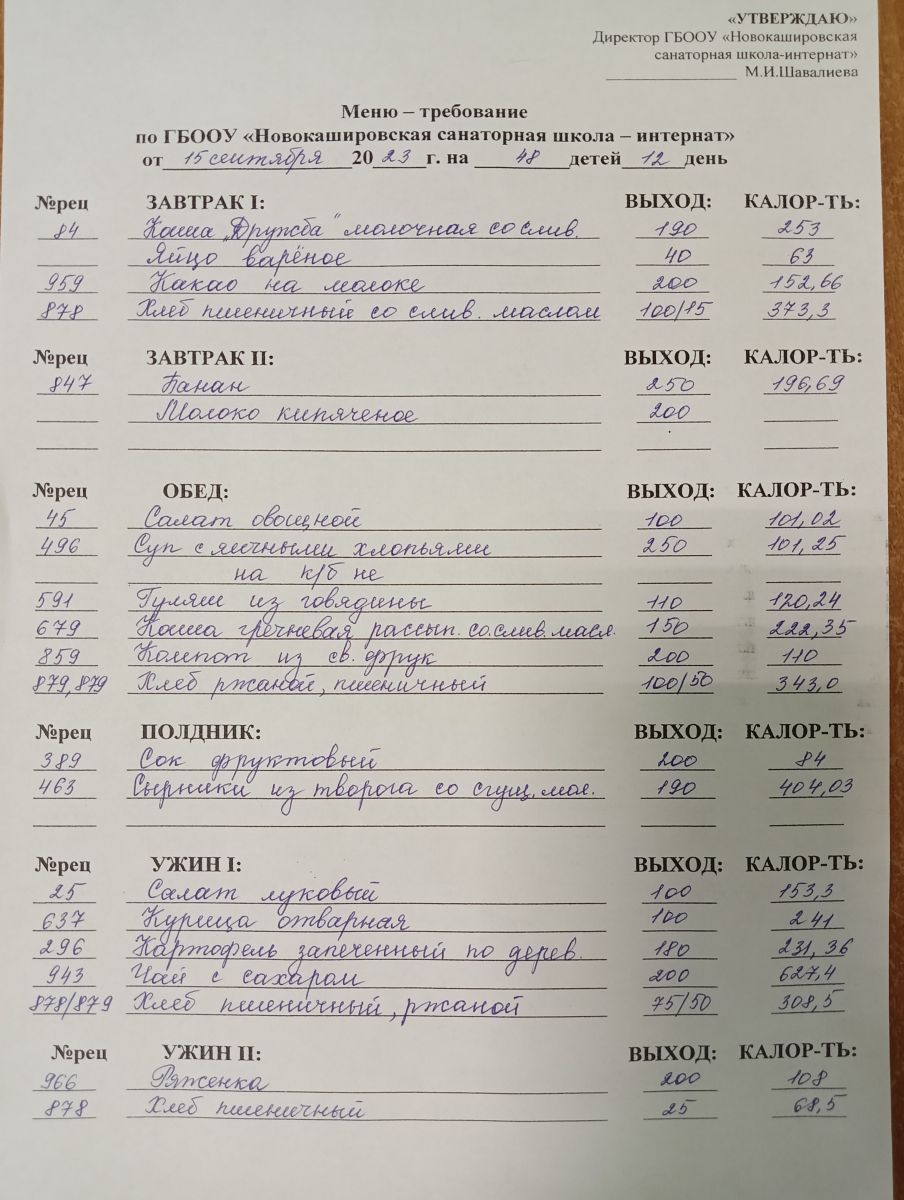 «УТВЕРЖДАЮ»
Директор ГБООУ «Новокашировская
санаторная школа-интернат»
______________ М.И.Шавалиева
Меню – требование
по ГБООУ «Новокашировская санаторная школа – интернат»
от 15 сентября 2023 г. на 48 детей 12 день
№рец ЗАВТРАК I: ВЫХОД: КАЛОР-ТЬ:
84 Каша „Дружба" молочная со слив. 190 253
Яйцо варёное 40 63
959 Какао на молоке 200 152,66
878 Хлеб пшеничный со слив. маслом 100/15 373,3
№рец ЗАВТРАК II: ВЫХОД: КАЛОР-ТЬ:
847 Банан 250 196,69
Молоко кипяченое 200
№рец ОБЕД: ВЫХОД: КАЛОР-ТЬ:
45 Салат овощной 100 101,02
496 Суп с яичными хлопьями 250 101,25
на к/б не
591 Гуляш из говядины 110 120,24
679 Каша гречневая рассып. со.слив.масл. 150 222,35
859 Компот из св. фрук 200 110
879,879 Хлеб ржаной, пшеничный 100/50 343,0
№рец ПОЛДНИК: ВЫХОД: КАЛОР-ТЬ:
389 Сок фруктовый 200 84
463 Сырники из творога со сгущ. мол. 190 404,03
№рец УЖИН I: ВЫХОД: КАЛОР-ТЬ:
25 Салат луковый 100 153,3
637 Курица отварная 100 241
296 Картофель запеченный по дерев. 180 231,36
943 Чай с сахаром 200 627,4
878/879 Хлеб пшеничный, ржаной 75/50 308,5
№рец УЖИН II: ВЫХОД: КАЛОР-ТЬ:
966 Ряженка 200 108
878 Хлеб пшеничный 25 68,5